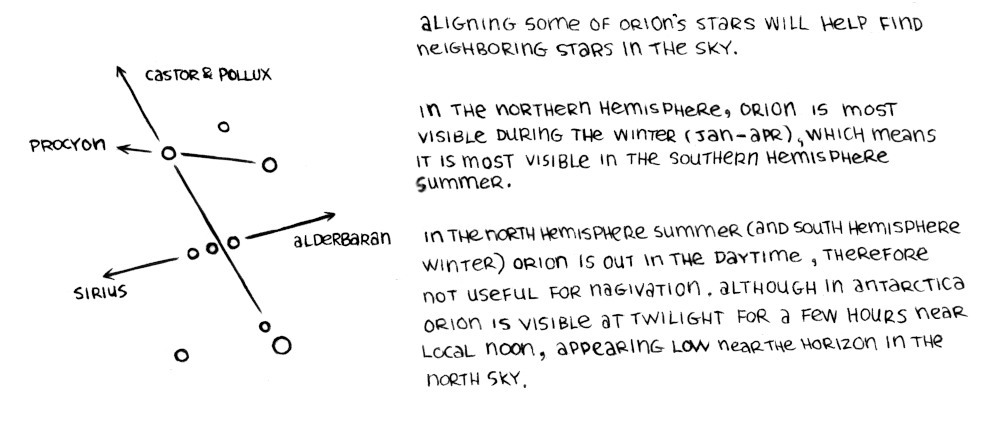 CASTOR & POLLUX
PROCYON
ALDERBARAN
SIRIUS
ALIGNING SOME OF ORION'S STARS WILL HELP FIND
NEIGHBORING STARS IN THE SKY.
IN THE NORTHERN HEMISPHERE, ORION IS MOST
VISIBLE DURING THE WINTER (JAN-APR), WHICH MEANS
IT IS MOST VISIBLE IN THE SOUTHERN HEMISPHERE
SUMMER.
IN THE NORTH HEMISPHERE SUMMER (AND SOUTH HEMISPHERE
WINTER) ORION IS OUT IN THE DAYTIME, THEREFORE
NOT USEFUL FOR NAGIVATION. ALTHOUGH IN ANTARCTICA
ORION IS VISIBLE AT TWILIGHT FOR A FEW HOURS NEAR
LOCAL NOON, APPEARING LOW NEAR THE HORIZON IN THE
NORTH SKY.